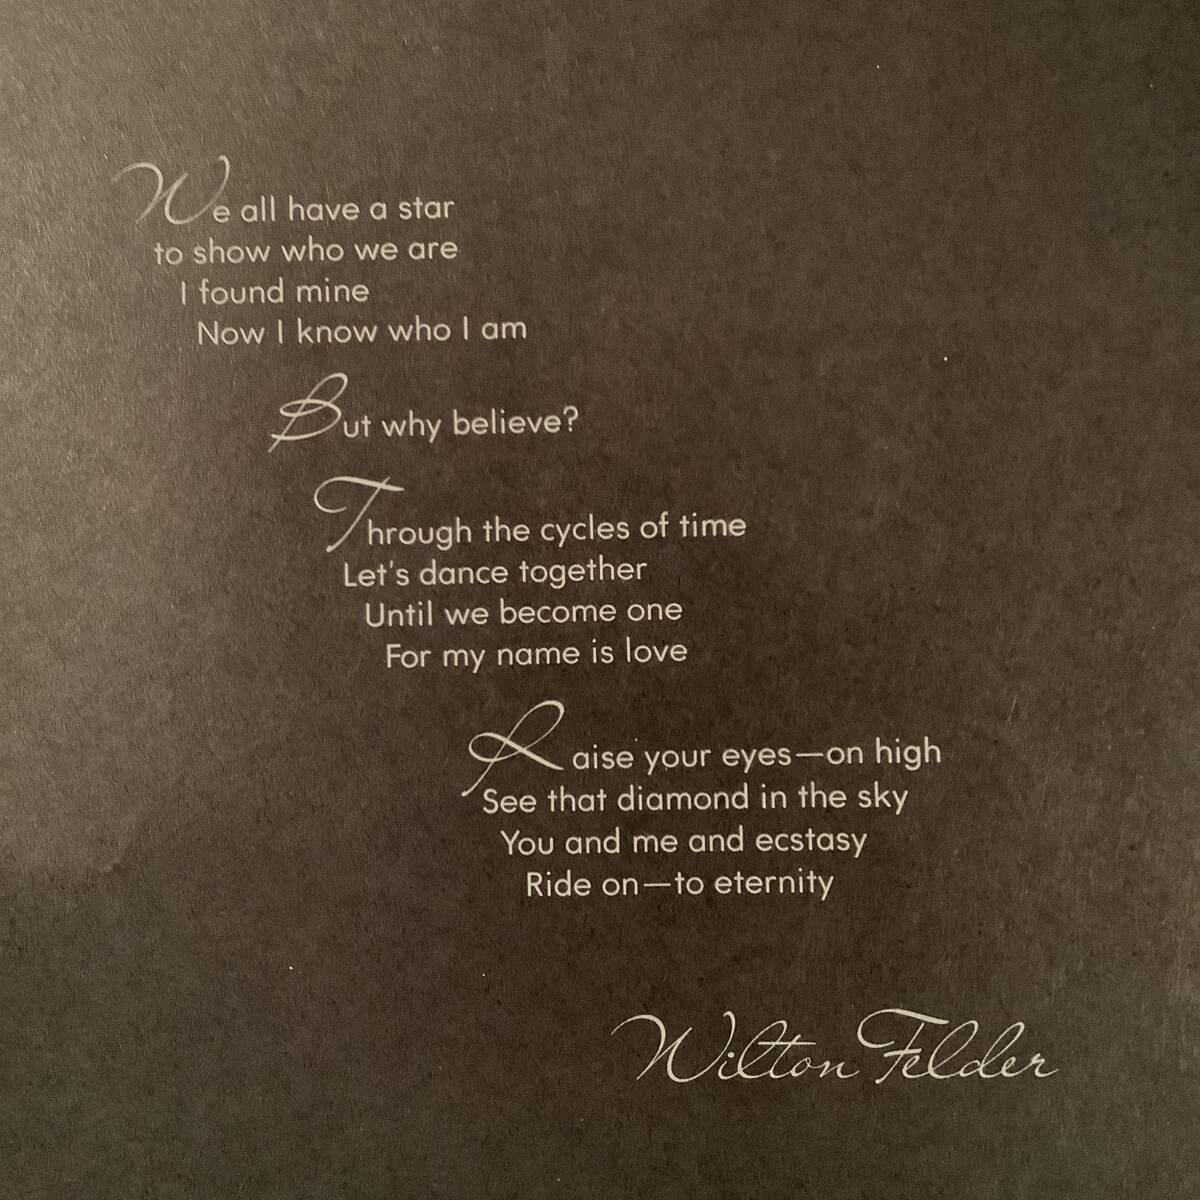 We all have a star
to show who we are
I found mine
Now I know who I am
But why believe?
Through the cycles of time
Let's dance together
Until we become one
For my name is love
Raise your eyes—on high
See that diamond in the sky
You and me and ecstasy
Ride on—to eternity
Wilton Felder